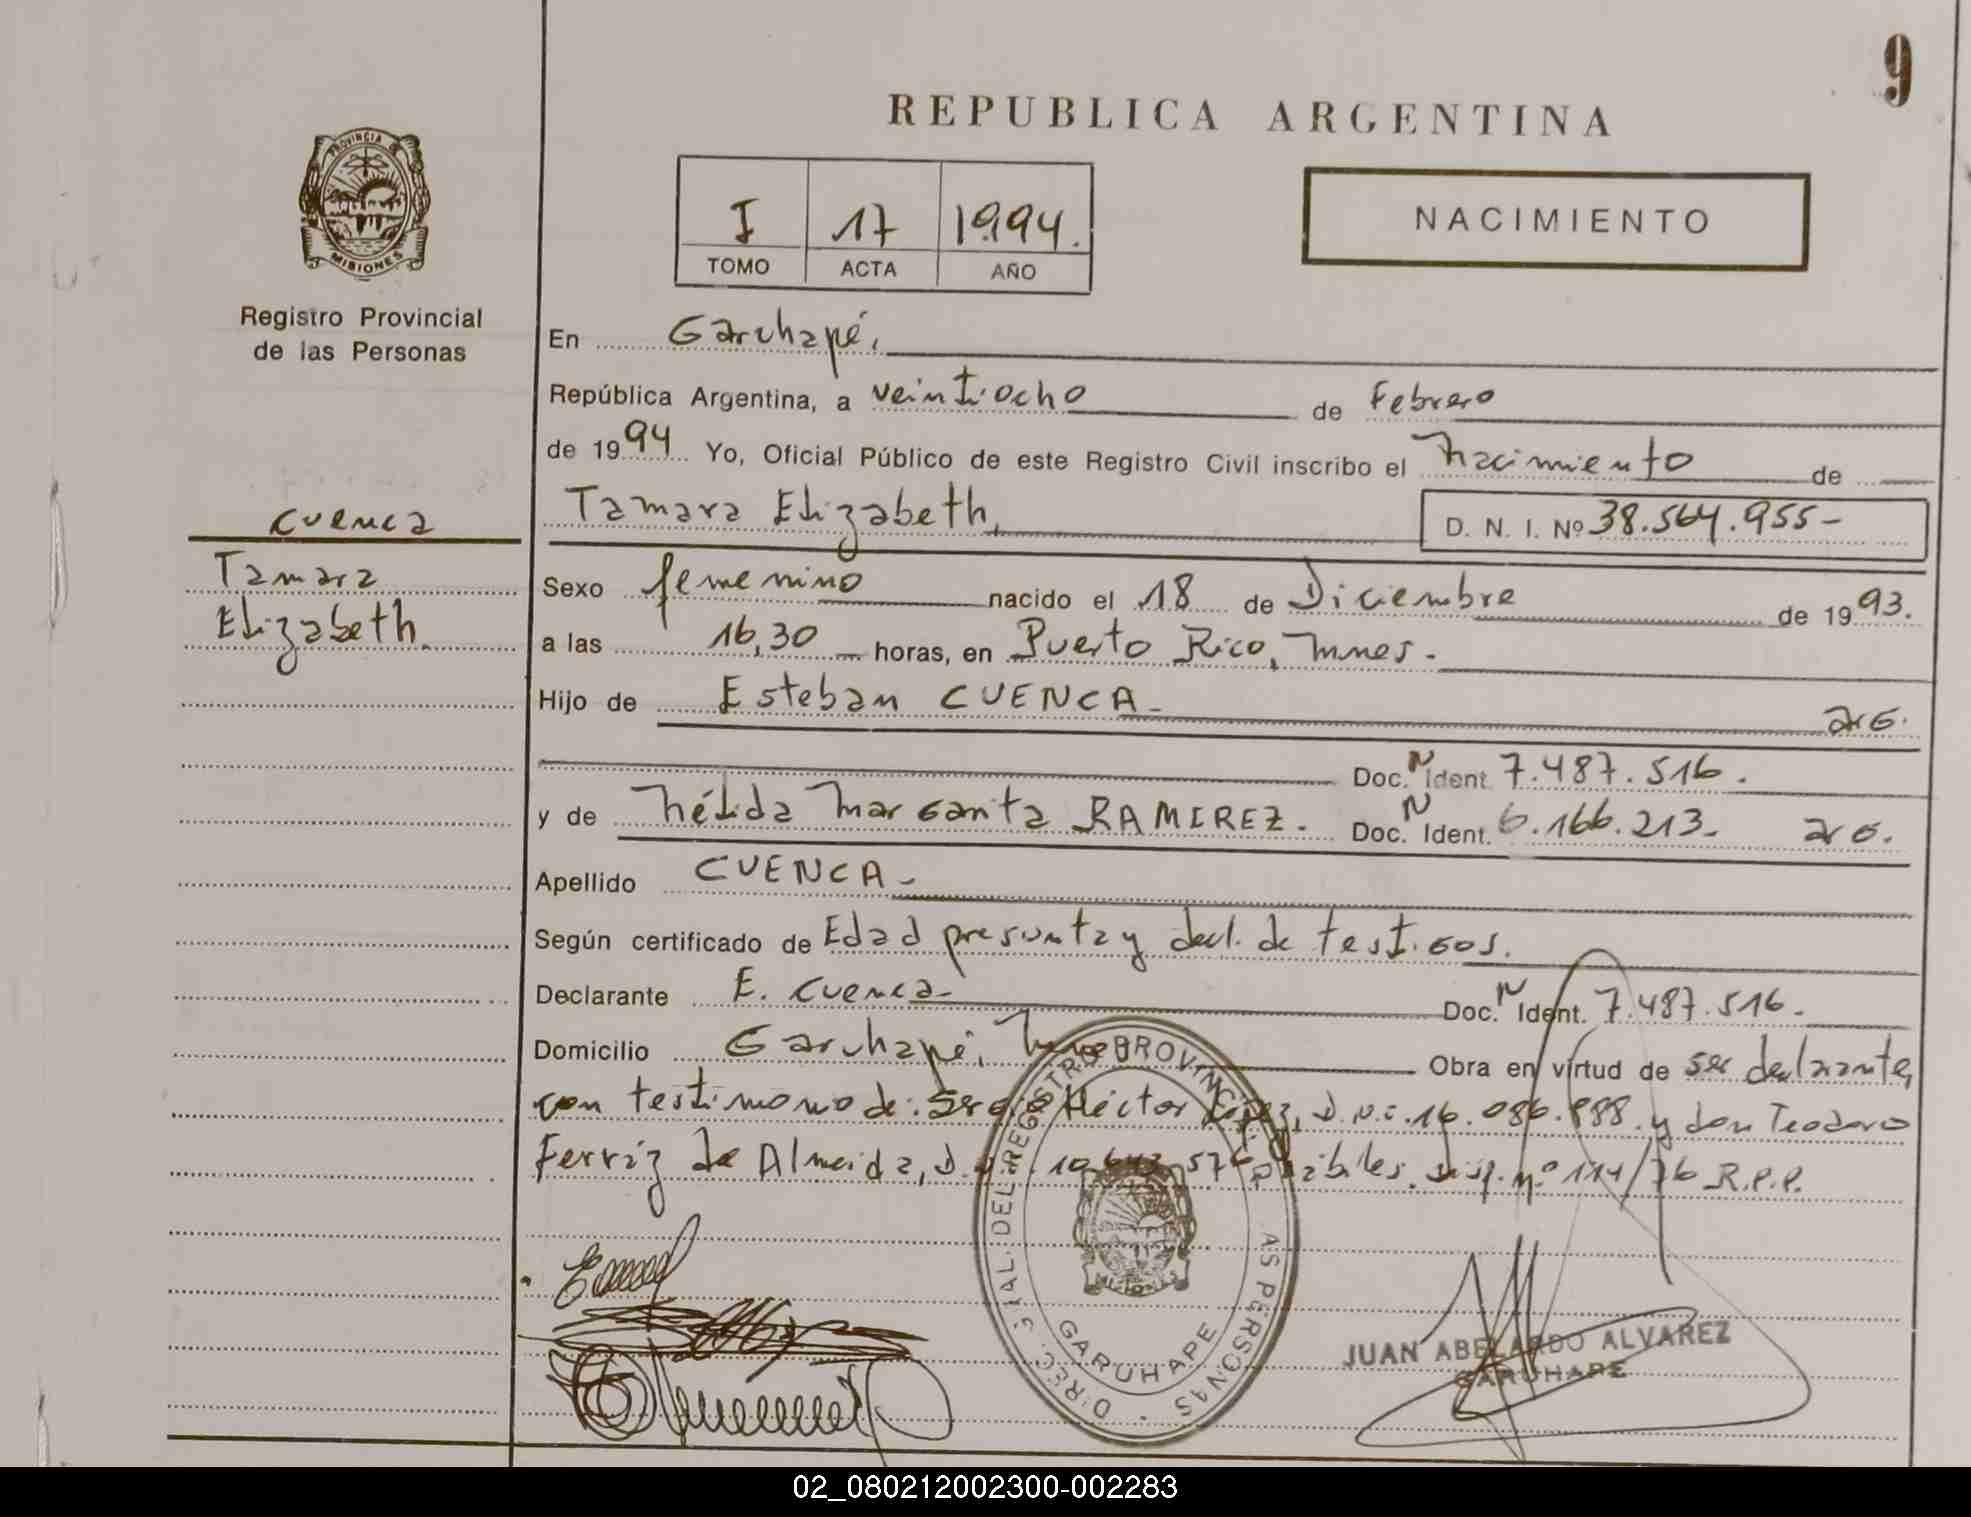 9
REPUBLICA ARGENTINA
PROVINCIA
MISIONES
I 17 1994.
TOMO ACTA AÑO
NACIMIENTO
Registro Provincial
de las Personas
En Garuhapé,
República Argentina, a veintiocho de Febrero
de 1994 Yo, Oficial Público de este Registro Civil inscribo el nacimiento de
Cuenca
Tamara
Elizabeth.
Tamara Elizabeth, D. N. I. Nº 38.564.955-
Sexo femenino nacido el 18 de Diciembre de 1993.
a las 16,30 horas, en Puerto Rico, Mnes.
Hijo de Esteban CUENCA- arg.
Doc. N Ident. 7.487.516.
y de Nélida Margarita RAMIREZ. Doc. N Ident. 6.166.213- arg.
Apellido CUENCA-
Según certificado de Edad presunta y decl. de testigos.
Declarante E. Cuenca- Doc. N Ident. 7.487.516.
Domicilio Garuhapé, Obra en virtud de ser declarante,
con testimonio de: Sergio Héctor López, D.N.I. 16.086.888 y don Teodoro
Ferráz de Almeida, D.N.I. 10.643.576 hábiles. Disp. nº 114/76 R.P.P.
DIREC. GRAL. DEL REGISTRO PROVINCIAL DE LAS PERSONAS
GARUHAPE
JUAN ABELARDO ALVAREZ
GARUHAPE
02_080212002300-002283